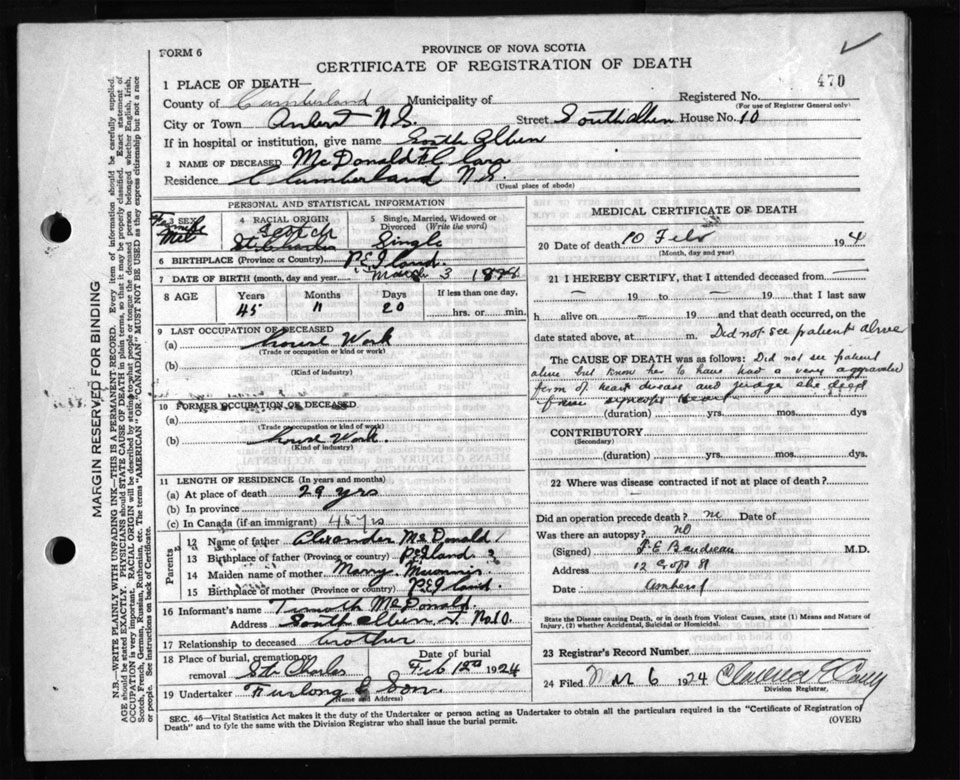 FORM 6
PROVINCE OF NOVA SCOTIA
CERTIFICATE OF REGISTRATION OF DEATH
470
1 PLACE OF DEATH—
County of Cumberland Municipality of Registered No.
(For use of Registrar General only)
City or Town Amherst N.S. Street South Albion House No. 10
If in hospital or institution, give name South Albion
2 NAME OF DECEASED McDonald Clara
Residence Cumberland N.S.
(Usual place of abode)
PERSONAL AND STATISTICAL INFORMATION
3 SEX Female
4 RACIAL ORIGIN Scotch
5 Single, Married, Widowed or Divorced (Write the word) Single
6 BIRTHPLACE (Province or Country) P E Island
7 DATE OF BIRTH (month, day and year) March 3 1878
8 AGE Years Months Days If less than one day,
45 11 20 hrs. or min.
9 LAST OCCUPATION OF DECEASED
(a) house Work
(Trade or occupation or kind or work)
(b)
(Kind of industry)
10 FORMER OCCUPATION OF DECEASED
(a)
(b) house Work.
(Kind of industry)
11 LENGTH OF RESIDENCE (In years and months)
(a) At place of death 29 yrs
(b) In province
(c) In Canada (if an immigrant) 45 yrs
Parents
12 Name of father Alexander McDonald
13 Birthplace of father (Province or country) P E Island
14 Maiden name of mother Mary
15 Birthplace of mother (Province or country) P E Island
16 Informant's name McDonald
Address South Albion St No 10.
17 Relationship to deceased brother
18 Place of burial, cremation or removal St Charles
Date of burial Feb 12 1924
19 Undertaker Furlong & Son
(Name and Address)
MEDICAL CERTIFICATE OF DEATH
20 Date of death 10 Feb 1924
(Month, day and year)
21 I HEREBY CERTIFY, that I attended deceased from
19 to 19 that I last saw
h alive on 19 and that death occurred, on
date stated above, at m. Did not see patient alive
The CAUSE OF DEATH was as follows: Did not see patient
alive but know her to have had a very aggravated
form of heart disease and judge she died
from heart
(duration) yrs. mos. dys
CONTRIBUTORY
(Secondary)
(duration) yrs. mos. dys.
22 Where was disease contracted if not at place of death?
Did an operation precede death? no Date of
Was there an autopsy? no
(Signed) M.D.
Address
Date Amherst
State the Disease causing Death, or in death from Violent Causes, state (1) Means and Nature of
Injury, (2) whether Accidental, Suicidal or Homicidal.
23 Registrar's Record Number
24 Filed Mar 6 1924 Clarence
Division Registrar.
SEC. 46—Vital Statistics Act makes it the duty of the Undertaker or person acting as Undertaker to obtain all the particulars required in the "Certificate of Registration of
Death" and to fyle the same with the Division Registrar who shall issue the burial permit.
(OVER)
MARGIN RESERVED FOR BINDING
N.B.—WRITE PLAINLY WITH UNFADING INK—THIS IS A PERMANENT RECORD. Every item of information should be carefully supplied.
AGE should be stated EXACTLY. PHYSICIANS should STATE CAUSE OF DEATH in plain terms, so that it may be properly classified. Exact statement of
OCCUPATION is very important. RACIAL ORIGIN will be described by stating to what people or tongue the deceased person belonged whether English, Irish,
Scotch, French, German, Russian, Ruthenian, etc. The terms "AMERICAN" OR "CANADIAN" MUST NOT BE USED as they express citizenship but not a race
or people. See instructions on back of Certificate.